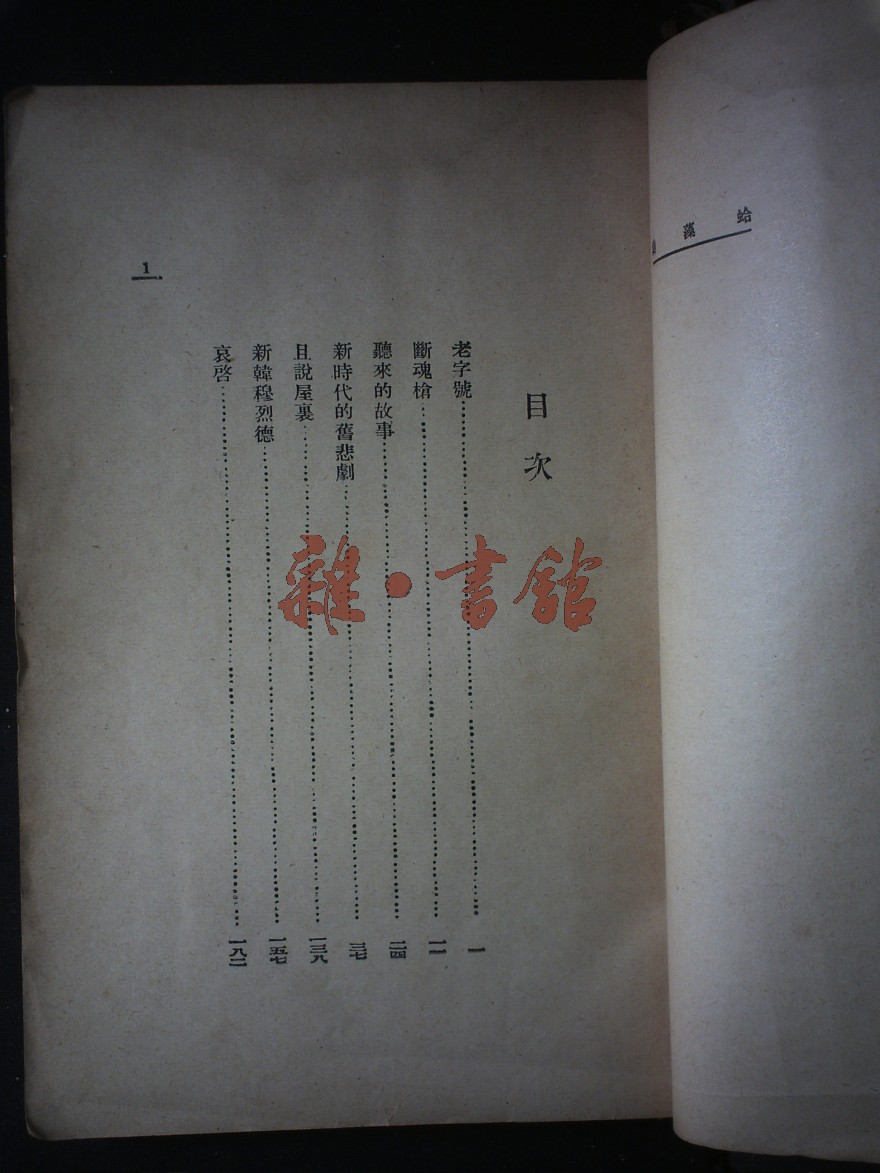 目次
老字號……一
斷魂槍……一一
聽來的故事……二四
新時代的舊悲劇……三七
且說屋裏……一三八
新韓穆烈德……一五七
哀啓……一八二
1
蛤藻
雜·書館